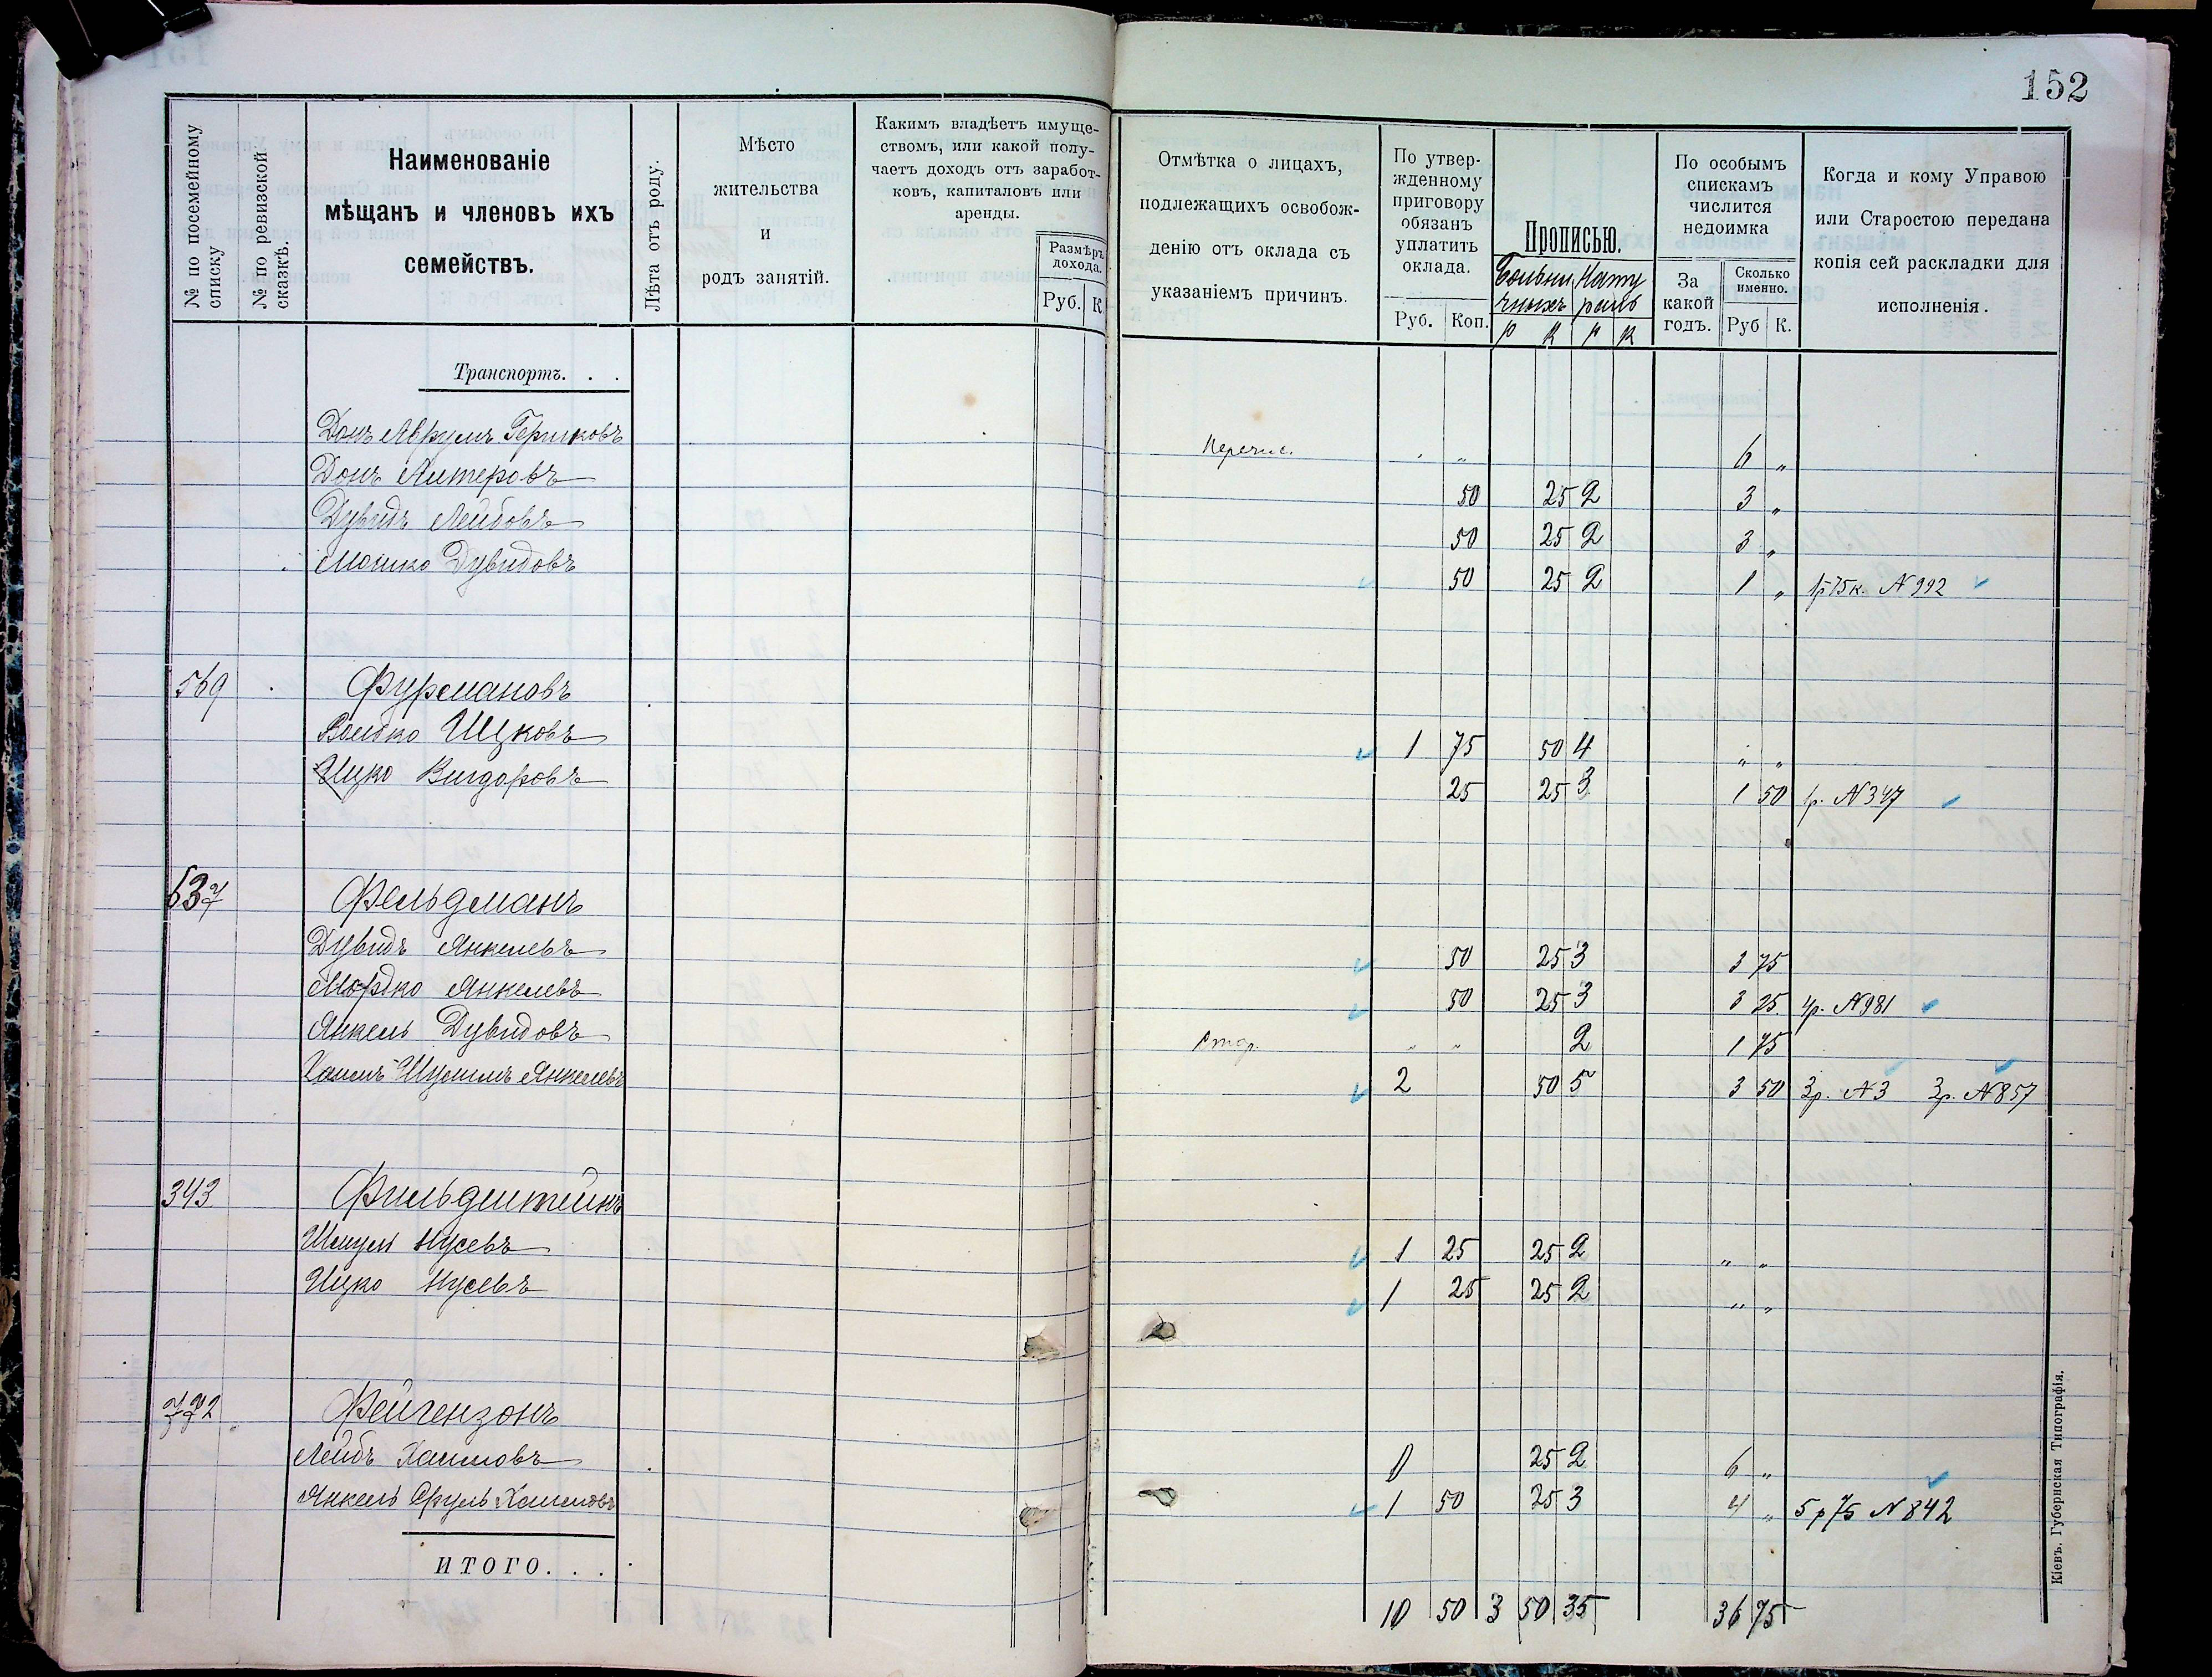 152
№ по посемейному списку
№ по ревизской сказкѣ.
Наименованіе
мѣщанъ и членовъ ихъ
семействъ.
Лѣта отъ роду.
Мѣсто
жительства
и
родъ занятій.
Какимъ владѣетъ имуще-
ствомъ, или какой полу-
чаетъ доходъ отъ заработ-
ковъ, капиталовъ или
аренды.
Размѣръ
дохода.
Руб. К
Отмѣтка о лицахъ,
подлежащихъ освобож-
денію отъ оклада съ
указаніемъ причинъ.
По утвер-
жденному
приговору
обязанъ
уплатить
оклада.
Руб. Коп.
Прописью.
Больни Нату
чныхъ раль
р к р к
По особымъ
спискамъ
числится
недоимка
За
какой
годъ.
Сколько
именно.
Руб К.
Когда и кому Управою
или Старостою передана
копія сей раскладки для
исполненія.
Транспортъ. . .
Донъ Аврумъ Гершковъ Перечис. " " 6 "
Донъ Литеровъ 50 25 2 3 "
Дувидъ Лейбовъ 50 25 2 3 "
Мошко Дувидовъ 50 25 2 1 " 1р75к. N 992
569 Фурмановъ
Волько Ицковъ 1 75 50 4 " "
Ицко Вигдоровъ 25 25 3 1 50 1р. N 347
637 Фельдманъ
Дувидъ Янкелевъ 50 25 3 3 75
Мордко Янкелевъ 50 25 3 3 25 4р. N 981
Янкель Дувидовъ " " 2 1 75
Хаимъ Шулимъ Янкелевъ 2 50 5 3 50 3р. N 3 3р. N 857
343 Фильдштейнъ
Шмуль Нусевъ 1 25 25 2 " "
Ицко Нусевъ 1 25 25 2 " "
772 Фейгензонъ
Лейбъ Хаимовъ 1 25 2 6 "
Янкель Сруль Хаимовъ 1 50 25 3 4 " 5р75 N 842
ИТОГО. . .
10 50 3 50 35 36 75
Кіевъ. Губернская Типографія.